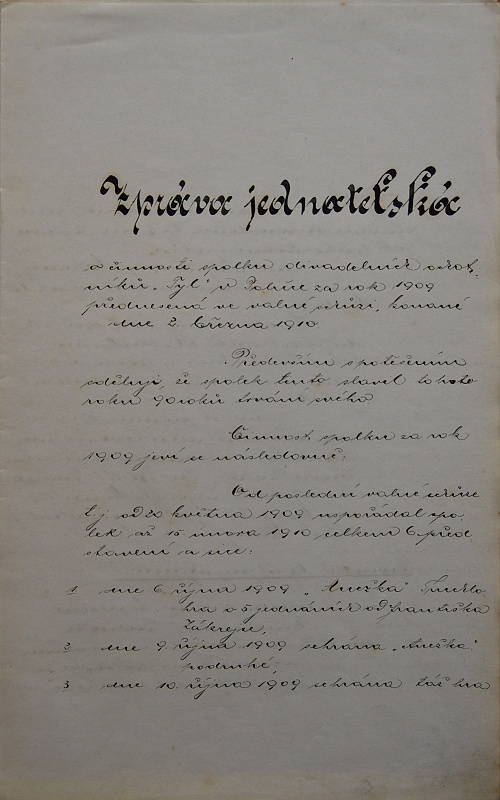 Zpráva jednatelská
o činnosti spolku divadelních ochot-
níků „Tyl“ v Poličce za rok 1909
přednesená ve valné schůzi, konané
dne 2. března 1910
Především s potěšením
sděluji, že spolek tento slavil tohoto
roku 90 roků trvání svého
Činnost spolku za rok
1909 jeví se následovně:
Od poslední valné schůze
t. j. od 20 května 1909 uspořádal spo-
lek až 15. února 1910 celkem 6 před-
stavení a sice:
1 dne 6. října 1909 „Anežka“ Truchlo-
hra o 5 jednáních od Františka
Zákrejse,
2 dne 9. října 1909 sehrána „Anežka“
podruhé,
3 dne 10. října 1909 sehrána táž hra